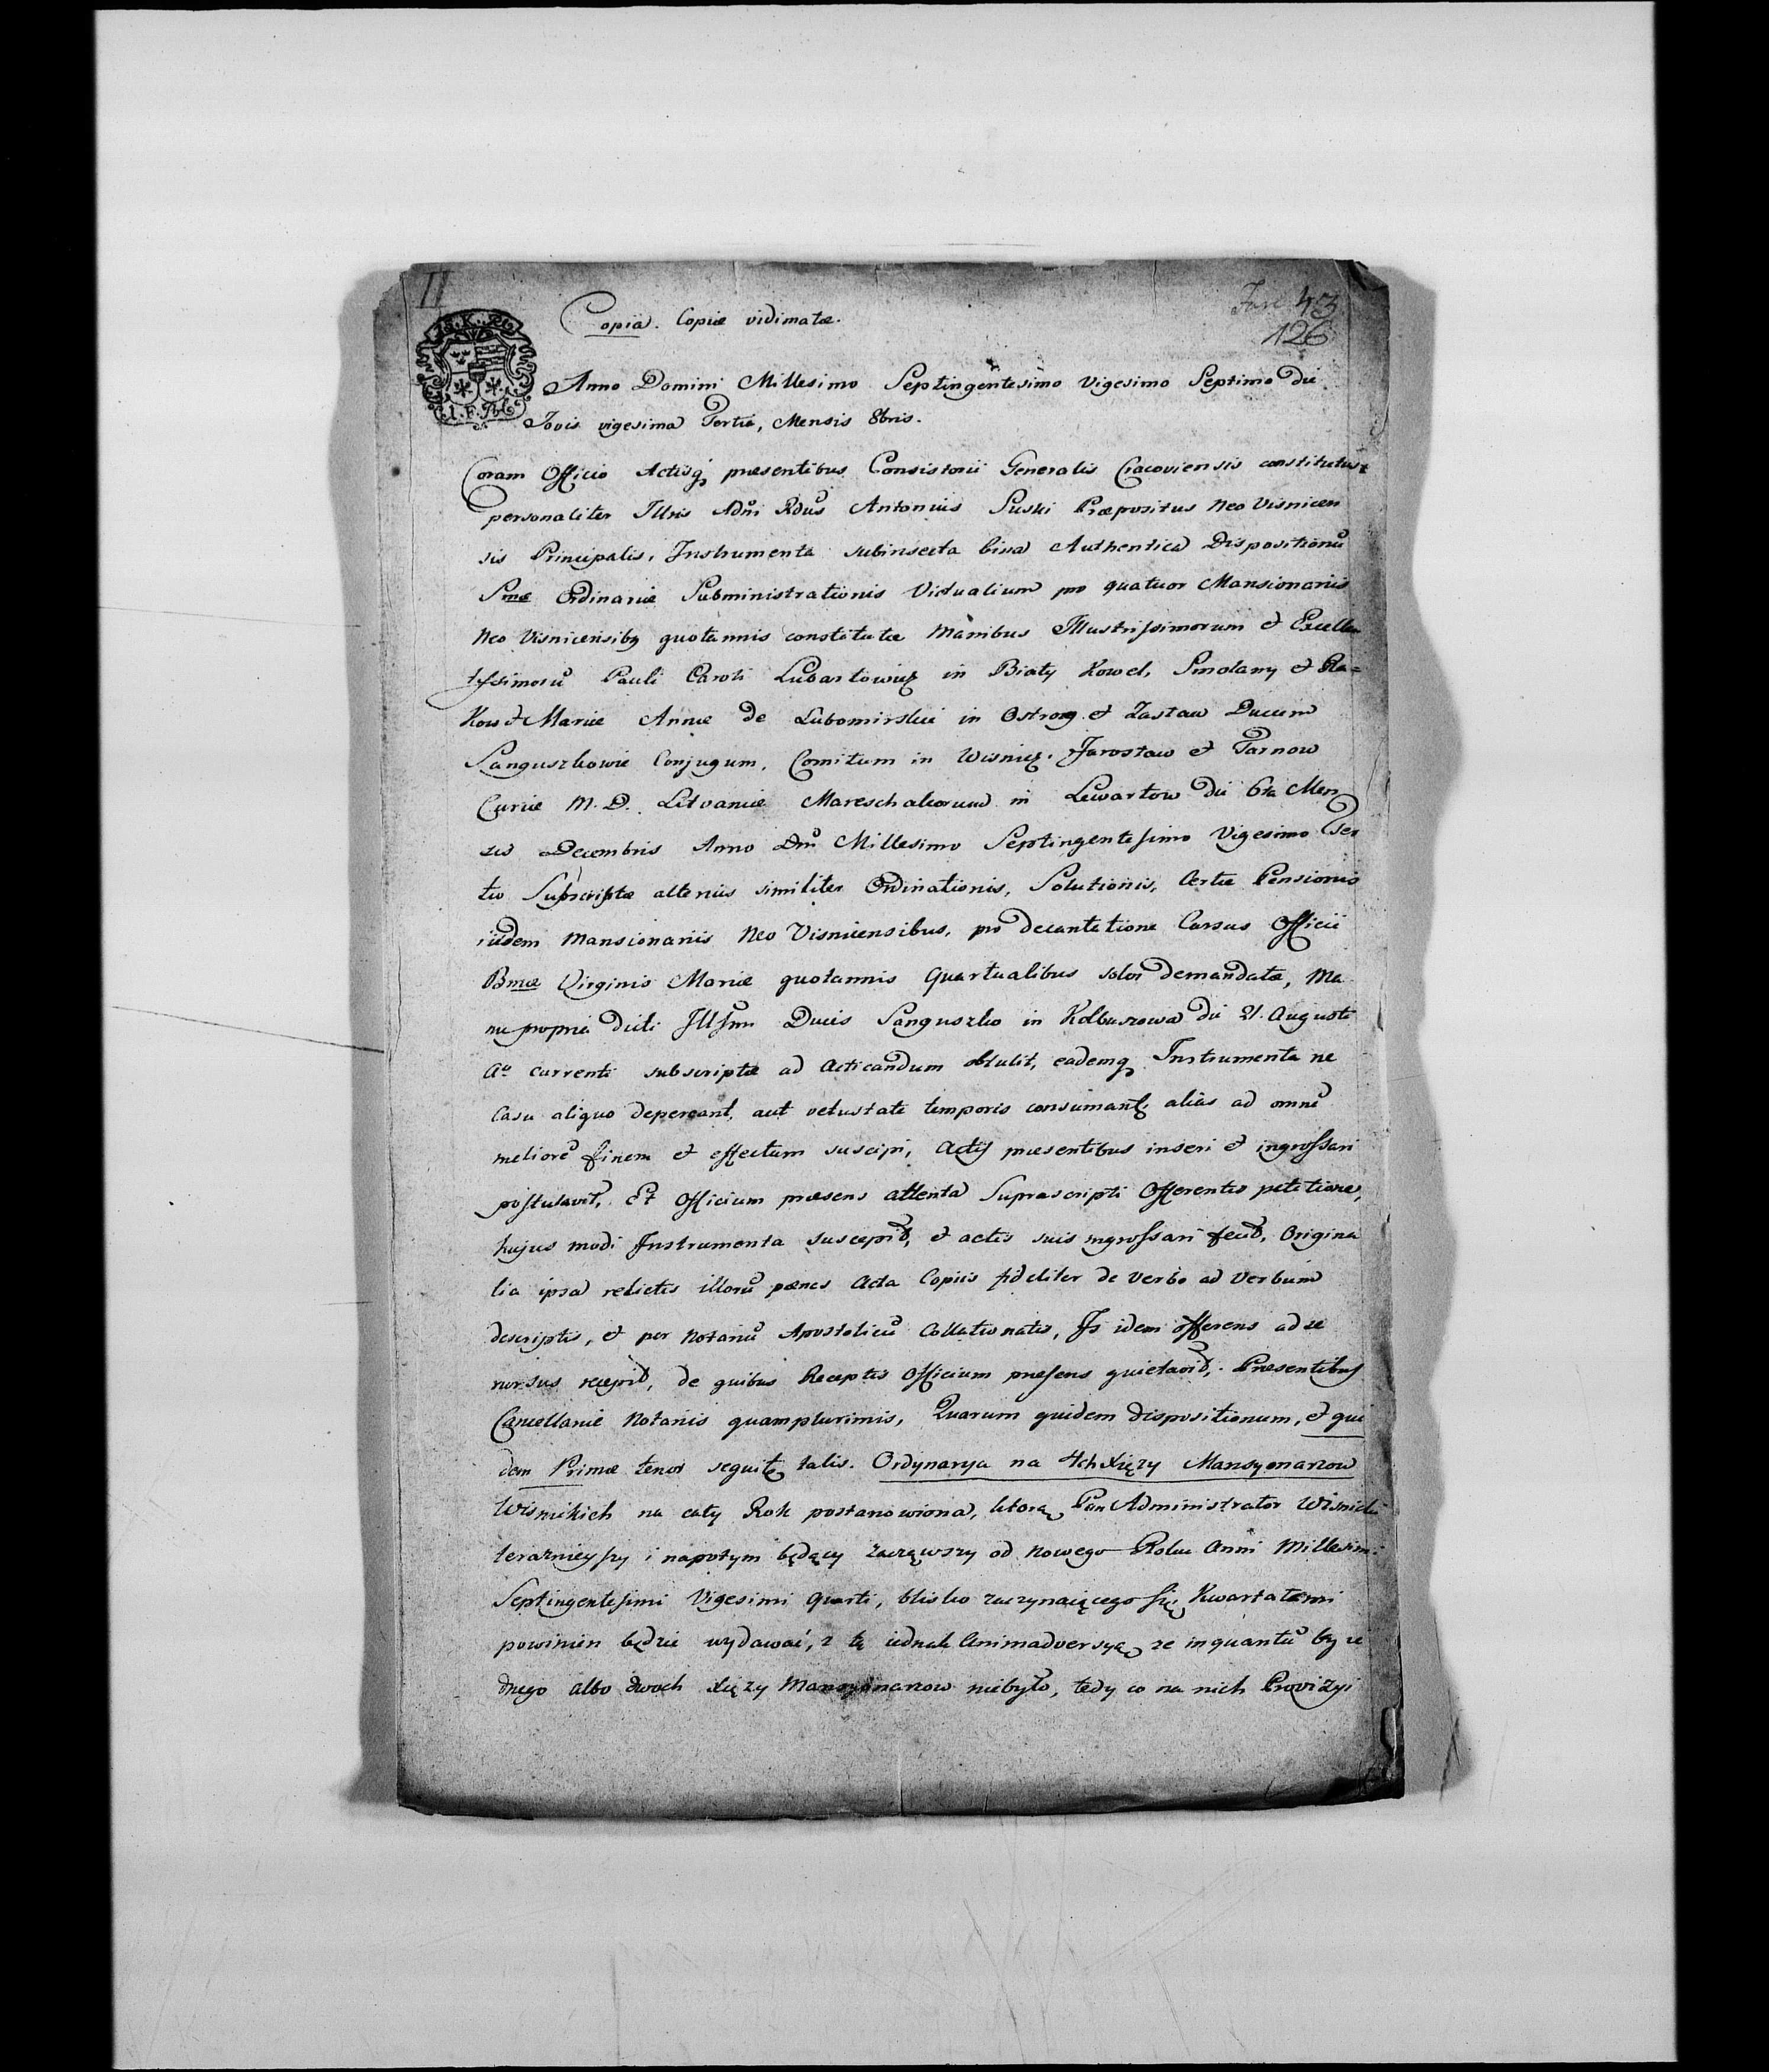 II
Fasc 43
126
Copia. Copiæ vidimatæ.
Anno Domini Millesimo Septingentesimo Vigesimo Septimo die
Jovis vigesima Tertia, Mensis 8bris.
Coram Officio Actisq presentibus Consistorii Generalis Cracoviensis constitutus
personaliter Illris Adm Rdus Antonius Suski Præpositus Neo Visnicen
sis Principalis, Instrumenta subinserta bina Authentica Dispositionũ
Ordinariæ Subministrationis Victualium pro quatuor Mansionariis
Neo Visnicensibq quotannis constitutæ Manibus Illustrissimorum et Excellen
tissimorũ Pauli Caroli Lubartowicz in Biały Kowel, Smolany et Ra=
kow et Mariæ Annæ de Lubomirskie in Ostrog et Zasław Ducum
Sanguszkowie Conjugum, Comitum in Wisnicz, Jarosław et Tarnow
Curiæ M. D. Litvaniæ Mareschalcorum in Lewartow die 6ta Men
sis Decembris Anno Dni Millesimo Septingentesimo Vigesimo Ter
tio Subscriptæ alterius similiter Ordinationis, Solutionis, Certæ Pensionis
iisdem Mansionariis Neo Visnicensibus, pro decantatione Cursus Officii
Bmæ Virginis Mariæ quotannis quartualibus solvi demandatæ, Ma
nu propria dicti Illsmi Ducis Sanguszko in Kolbuszowa die 21. Augusti
Ao currenti subscriptæ ad Acticandum obtulit, eademq Instrumenta ne
Casu aliquo depereant, aut vetustate temporis consumant, alias ad omnẽ
meliorẽ finem et effectum suscipi, Actis præsentibus inseri et ingrossari
postulavit, Et Officium præsens attenta Suprascripti Offerentis petitione,
hujus modi Instrumenta suscepit, et actis suis ingrossari fecit, Origina
lia ipsa relictis illorũ pænes Acta Copiis fideliter de verbo ad verbum
descriptis, et per Notariũ Apostolicũ Collationatis, Is idem offerens ad se
rursus recepit, de quibus Receptis Officium præsens quietavit, Præsentibus
Cancellariæ Notariis quamplurimis, Quarum quidem dispositionum, et qui
dem Primæ tenor sequitq talis. Ordynarya na 4ch Xięzy Mansyonarzow
Wisnickich na cały Rok postanowiona, ktorą Pan Administrator Wisnicki
terazniejszy i napotym będący zacząwszy od Nowego Roku Anni Millesimi
Septingentesimi Vigesimi Quarti, blisko zaczynaiącego się Kwartałami
powinien będzie wydawać, z tą iednak Animadversyą ze inquantũ by ie
dnego albo dwoch Xięzy Mansyonarzow niebyło, tedy co na nich Prowizyi